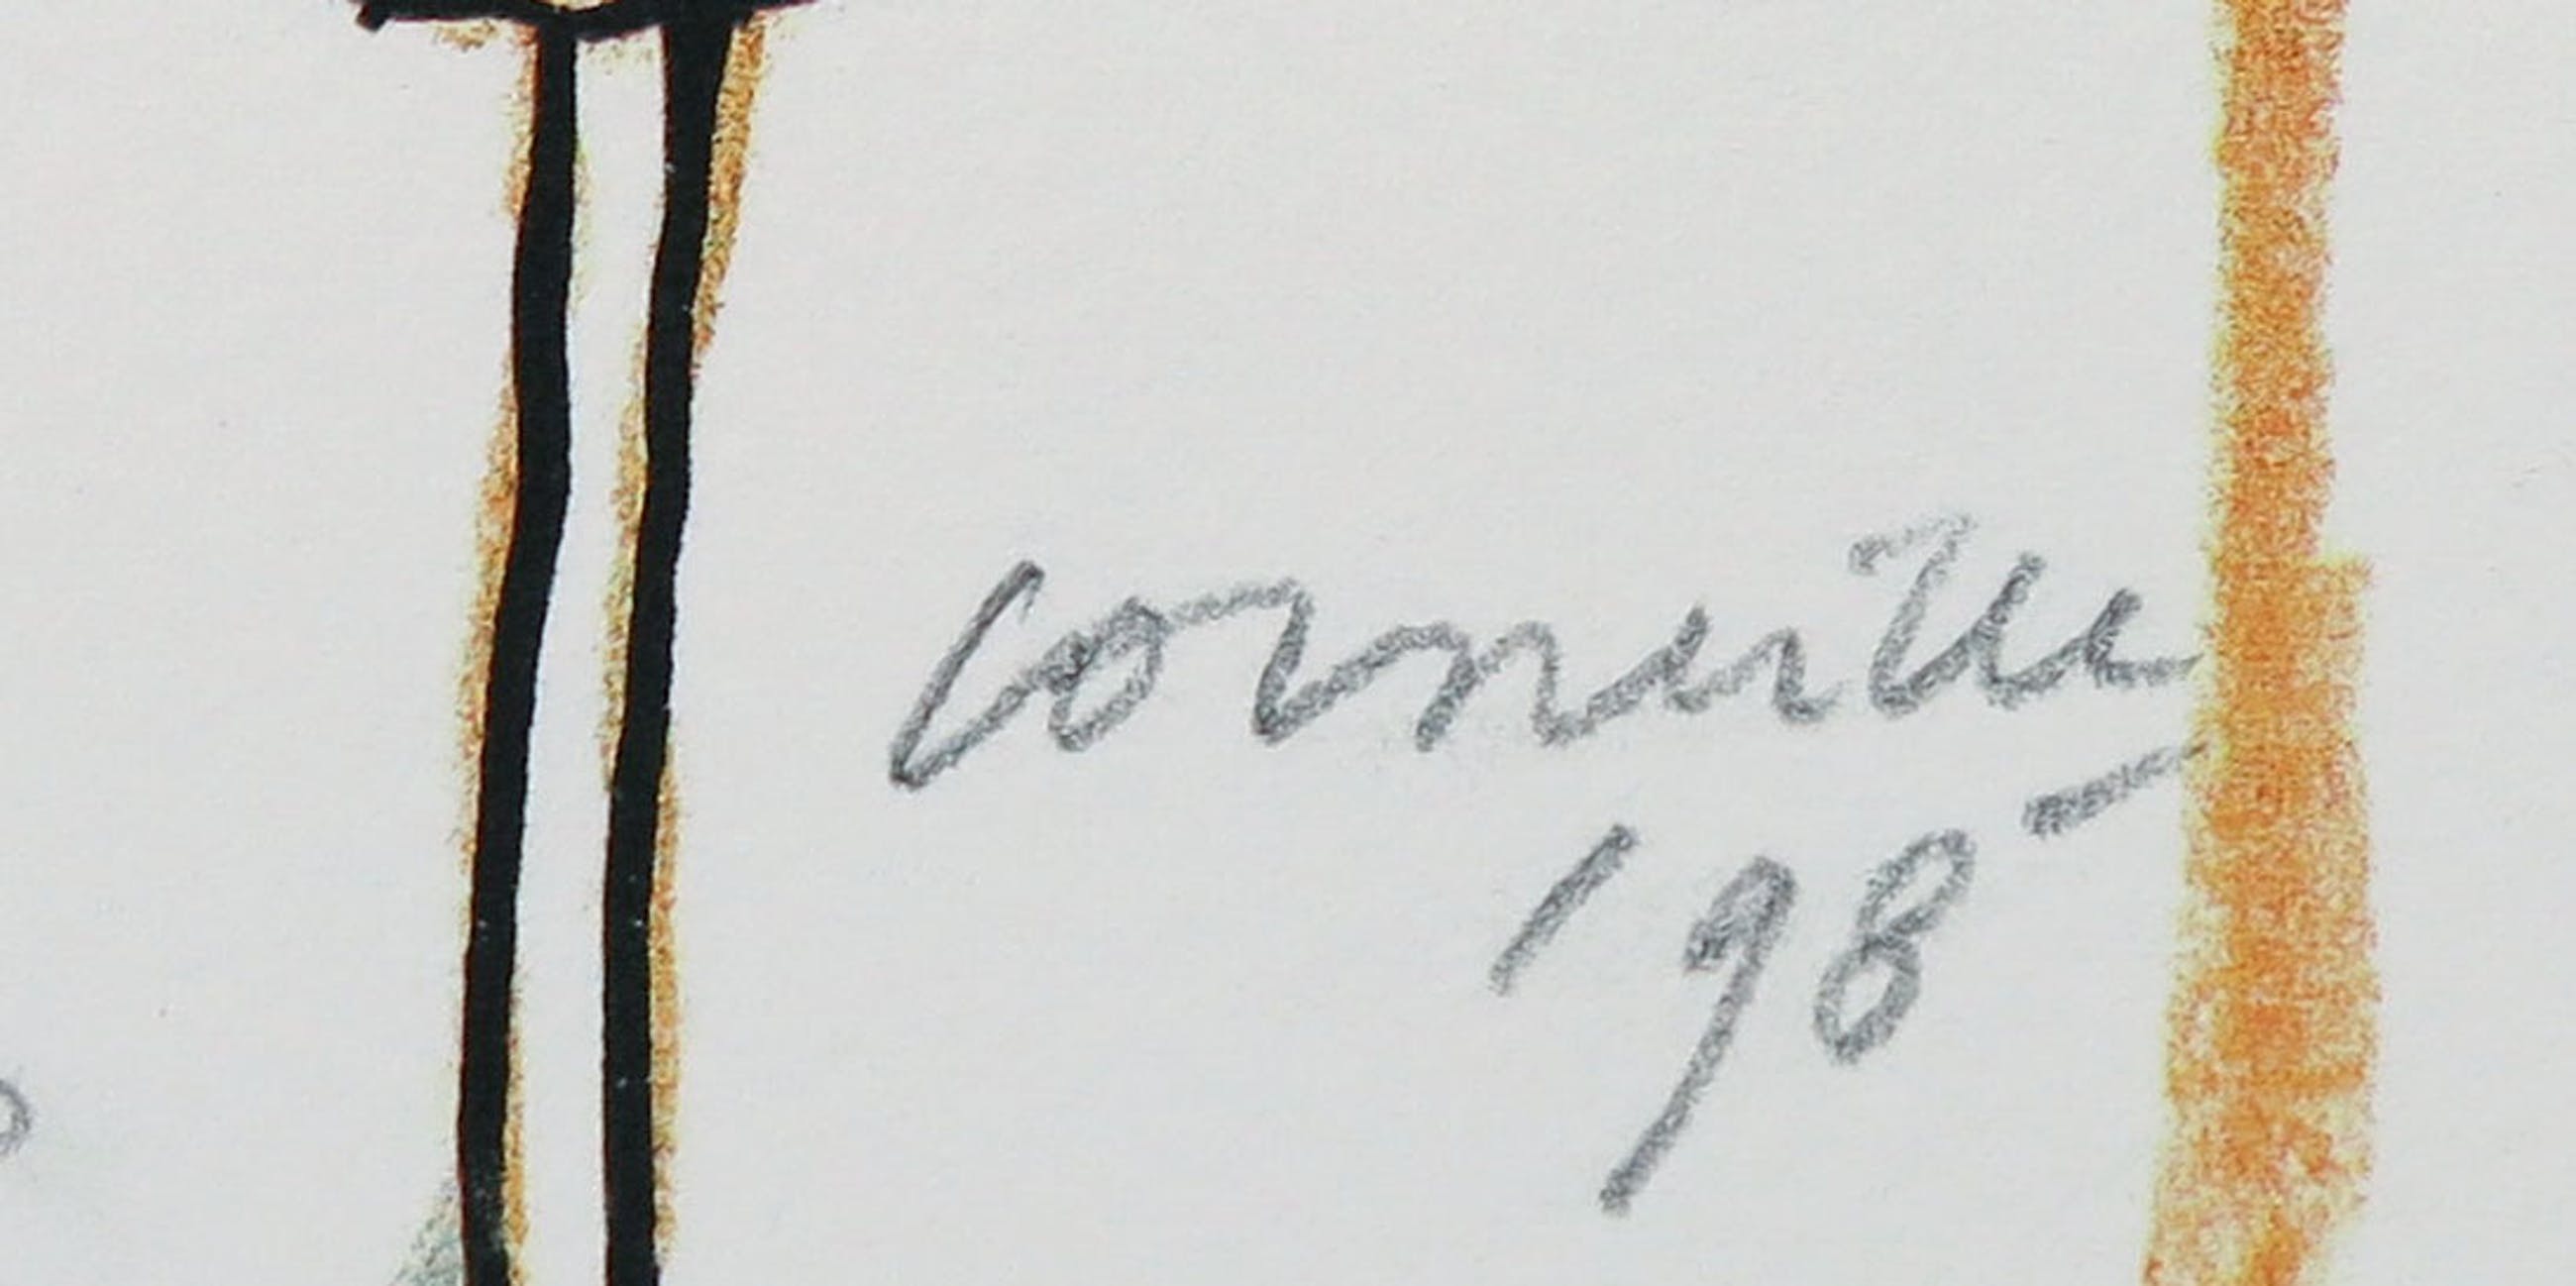 Corneille
'98